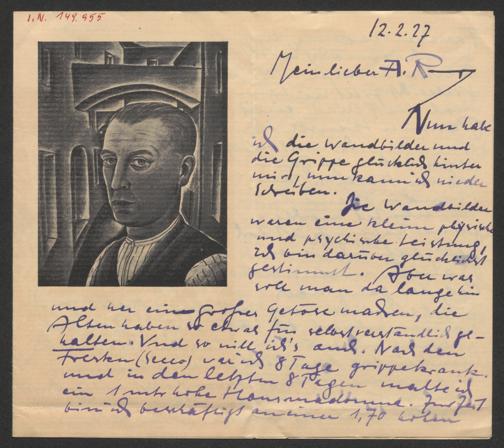 I.N. 149.955
12.2.27
Mein lieber A. R.
Nun habe
ich die Wandbilder und
die Grippe glücklich hinter
mir, nun kann ich wieder
schreiben.
Die Wandbilder
waren eine kleine physische
und psychische Leistung,
ich bin darüber glücklichst
gestimmt. Aber was
soll man da lange hin
und her ein großes Getöse machen, die
Alten haben so etwas für selbstverständlich ge-
halten. Und so will ich's auch. Nach den
Fresken (secco) war ich 8 Tage grippekrank
und in den letzten 8 Tagen malte ich
ein 1 mtr hohe Hausmadonna. Zur Zeit
bin ich beschäftigt an einer 1,70 hohen